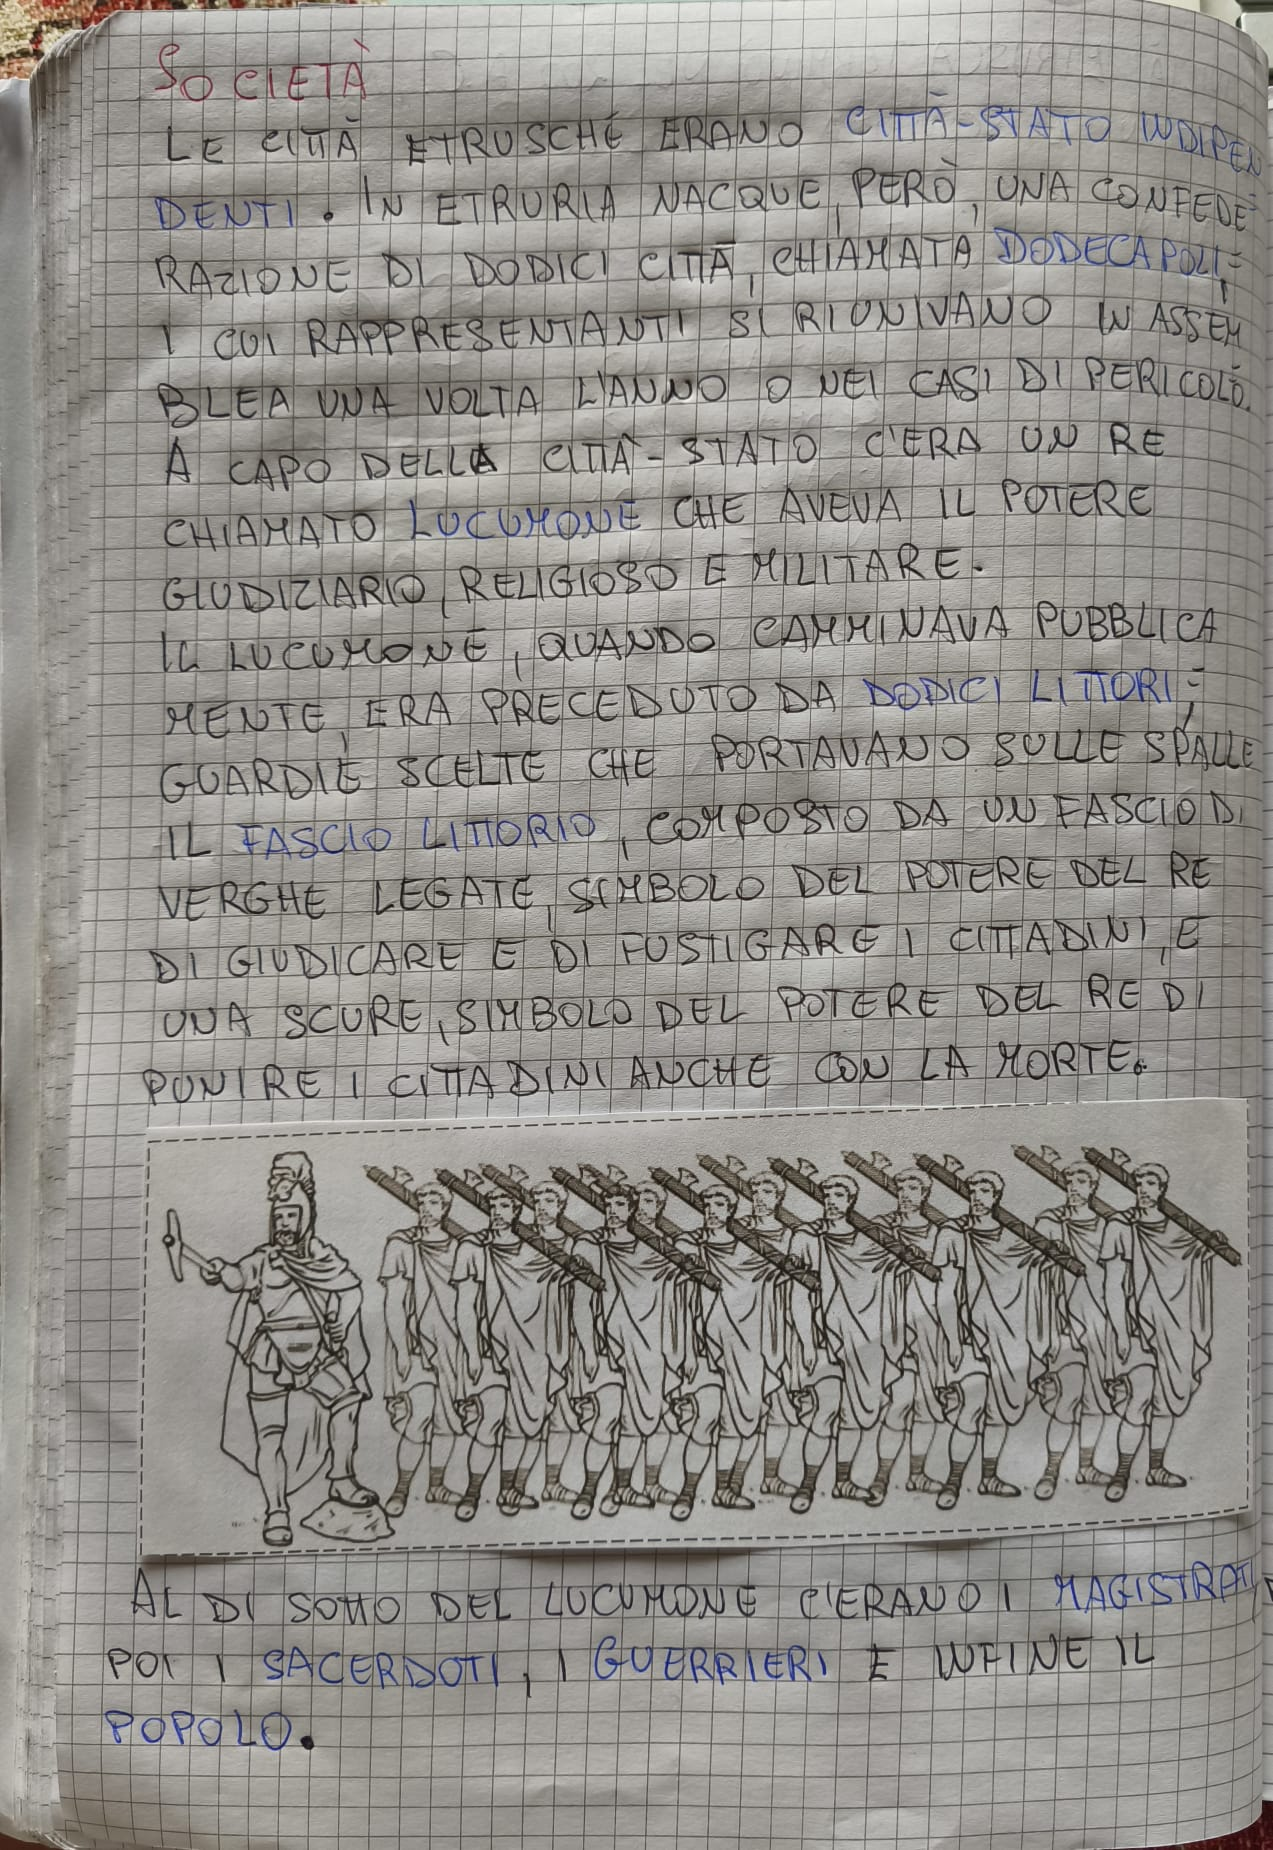 SOCIETÀ
LE CITTÀ ETRUSCHE ERANO CITTÀ-STATO INDIPEN
DENTI. IN ETRURIA NACQUE, PERÒ, UNA CONFEDE=
RAZIONE DI DODICI CITTÀ, CHIAMATA DODECAPOLI,=
I CUI RAPPRESENTANTI SI RIUNIVANO IN ASSEM
BLEA UNA VOLTA L'ANNO O NEI CASI DI PERICOLO.
A CAPO DELLA CITTÀ-STATO C'ERA UN RE
CHIAMATO LUCUMONE CHE AVEVA IL POTERE
GIUDIZIARIO, RELIGIOSO E MILITARE.
IL LUCUMONE, QUANDO CAMMINAVA PUBBLICA
MENTE, ERA PRECEDUTO DA DODICI LITTORI,=
GUARDIE SCELTE CHE PORTAVANO SULLE SPALLE
IL FASCIO LITTORIO, COMPOSTO DA UN FASCIO DI
VERGHE LEGATE, SIMBOLO DEL POTERE DEL RE
DI GIUDICARE E DI FUSTIGARE I CITTADINI, E
UNA SCURE, SIMBOLO DEL POTERE DEL RE DI
PUNIRE I CITTADINI ANCHE CON LA MORTE.
AL DI SOTTO DEL LUCUMONE C'ERANO I MAGISTRATI,
POI I SACERDOTI, I GUERRIERI E INFINE IL
POPOLO.